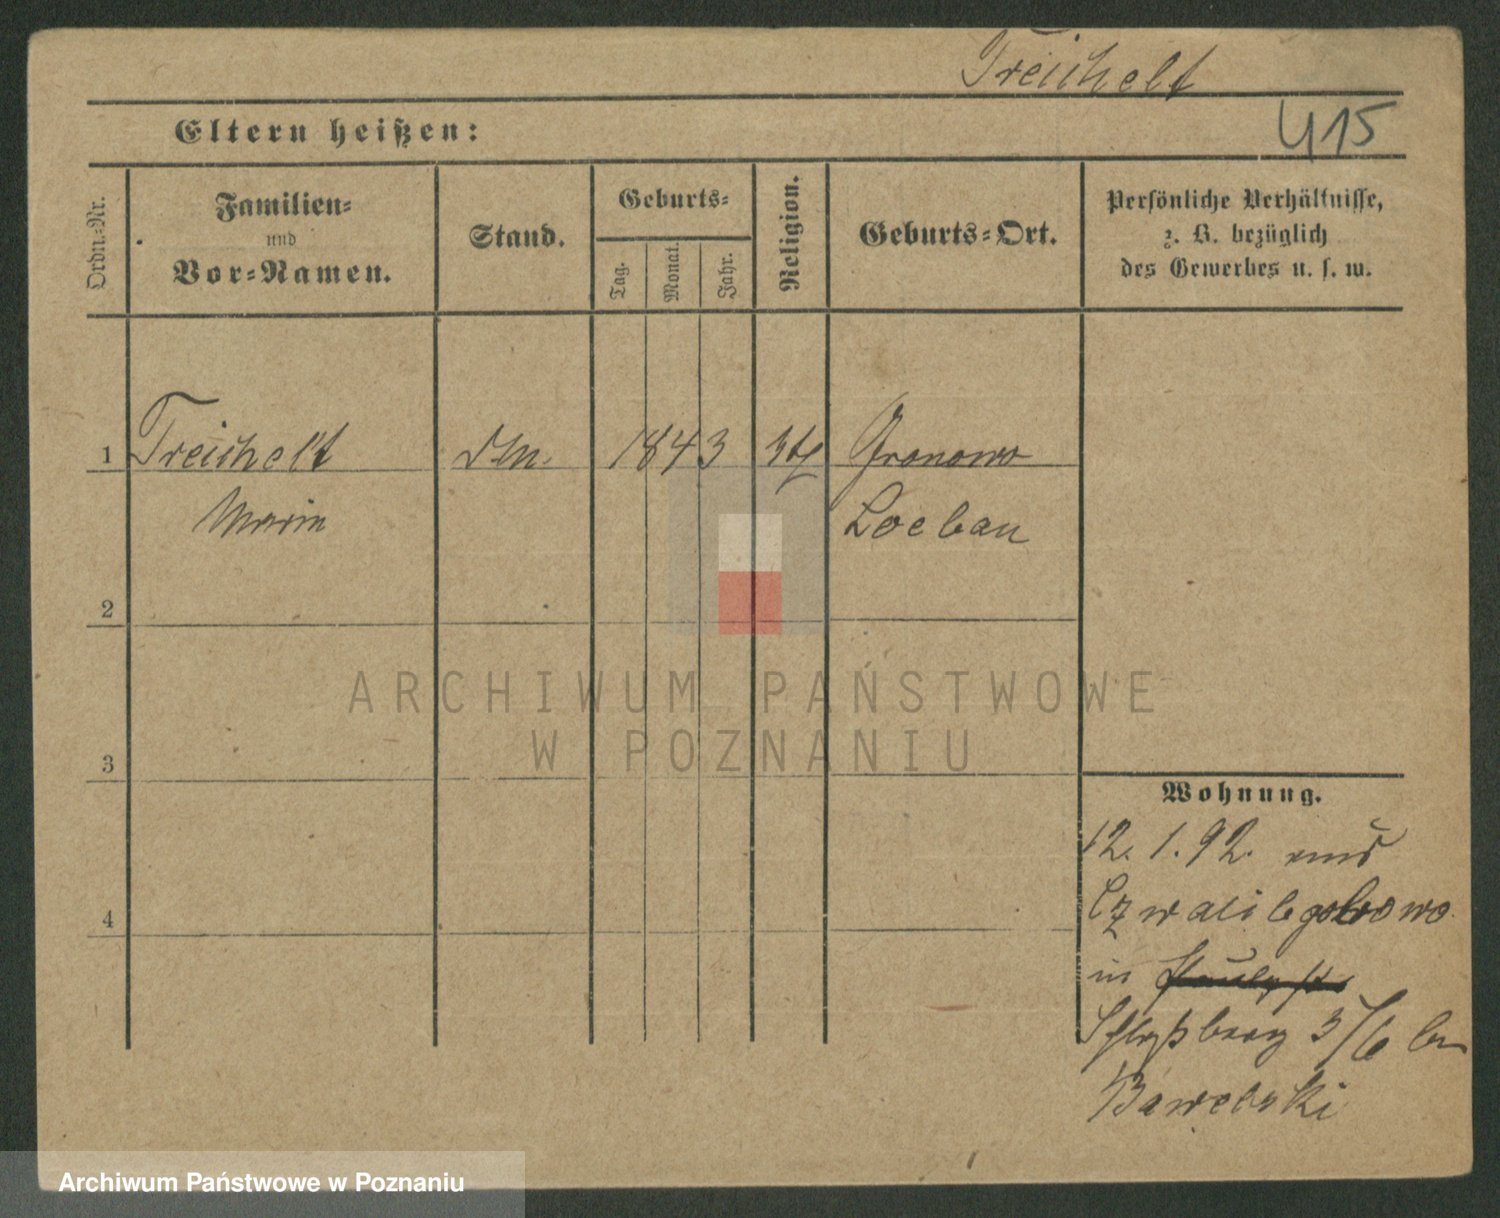 Treichelt
415
Eltern heißen:
Ordn.-Nr.
Familien-
und
Vor-Namen.
Stand.
Geburts-
Tag.
Monat.
Jahr.
Religion.
Geburts-Ort.
Persönliche Verhältnisse,
z. B. bezüglich
des Gewerbes u. s. w.
1
Treichelt
1843
Gronowo
Marin
Loebau
2
3
4
ARCHIWUM PAŃSTWOWE
W POZNANIU
Wohnung.
12. 1. 92. aus
in
Schloßberg 3/6 bei
Archiwum Państwowe w Poznaniu